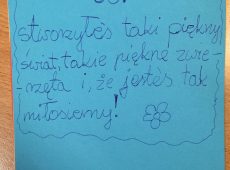 stworzyłeś taki piękny
świat, takie piękne zwie-
-rzęta i, że jesteś tak
miłosierny!